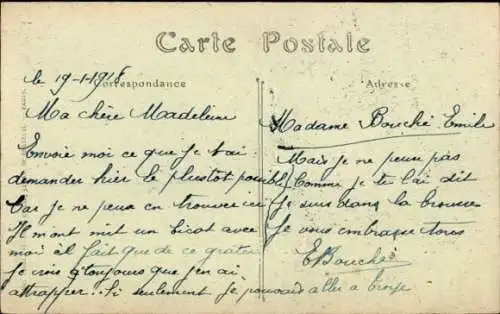 Carte Postale
Correspondance
Adresse
le 19-1-1918
Ma chère Madeleine
Envoie moi ce que je t'ai
demander hier le plustot possible
Car je ne peux en trouver ici
Il mont mit un bicot avec
moi il fait que de ce grater
je crois toujours que j'en ai
attrapper. Si seulement je pouvais aller a
Madame Bouché Emile
Mais je ne peux pas
Comme je te l'ai dit
Je suis dans la brousse
Je vous embrasse tous
EBouché